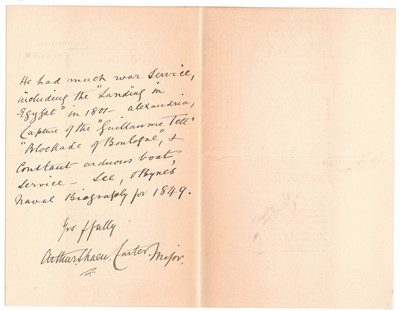 He had much war service,
including the "Landing in
Egypt" in 1801 - Alexandria,
Capture of the "Guillaume Tell"
"Blockade of Boulogne", &
Constant arduous boat
service - See, O'Byrnes
Naval Biography for 1849.
Yrs ffully
Arthur Shaen Carter. Major.